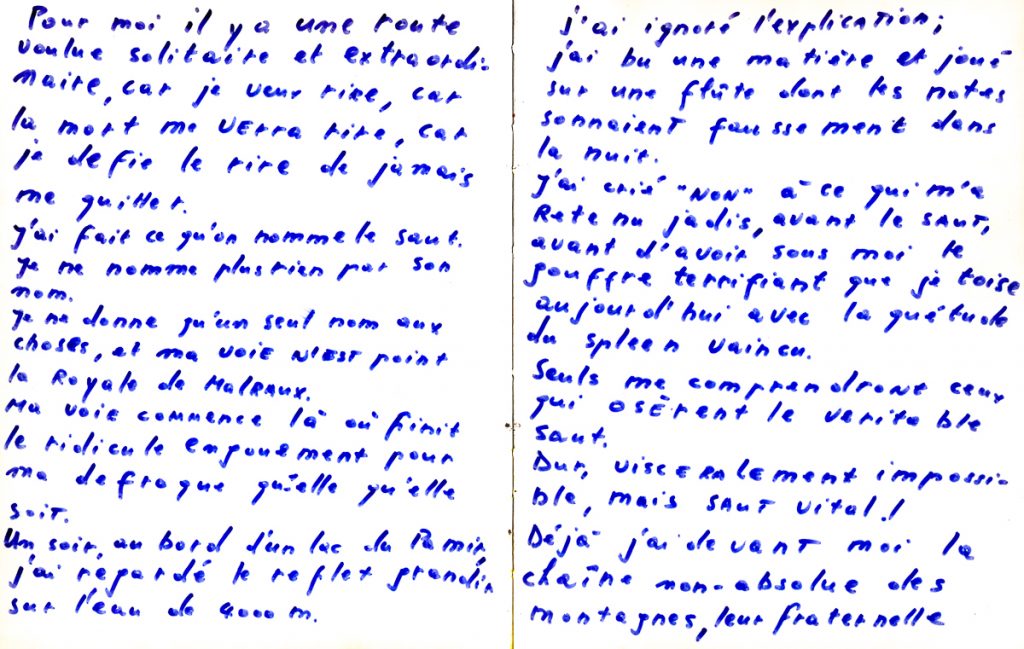 Pour moi il y a une route
voulue solitaire et extraordi-
naire, car je veux rire, car
la mort me VERRA rire, car
je defie le rire de jamais
me quitter.
J'ai fait ce qu'on nomme le saut.
Je ne nomme plus rien par son
nom.
Je ne donne qu'un seul nom aux
choses, et ma VOIE N'EST point
la Royale de MalRAUX.
Ma VOIE commence là où finit
le ridicule engouement pour
ma defroque qu'elle qu'elle
soit.
Un soir, au bord d'un lac du Pamir,
j'ai regardé le reflet grandir
sur l'eau de 4000 m.
j'ai ignoré l'explication;
j'ai bu une matière et joué
sur une flûte dont les notes
sonnaient faussement dans
la nuit.
J'ai crié "NON" à ce qui m'a
Retenu jadis, avant le SAUT,
avant d'avoir sous moi le
gouffre terrifiant que je toise
aujourd'hui avec la quétude
du spleen vaincu.
Seuls me comprendront ceux
qui osèrent le veritable
saut.
Dur, visceralement impossi-
ble, mais SAUT vital!
Déjà j'ai devant moi la
chaîne non-absolue des
montagnes, leur fraternelle